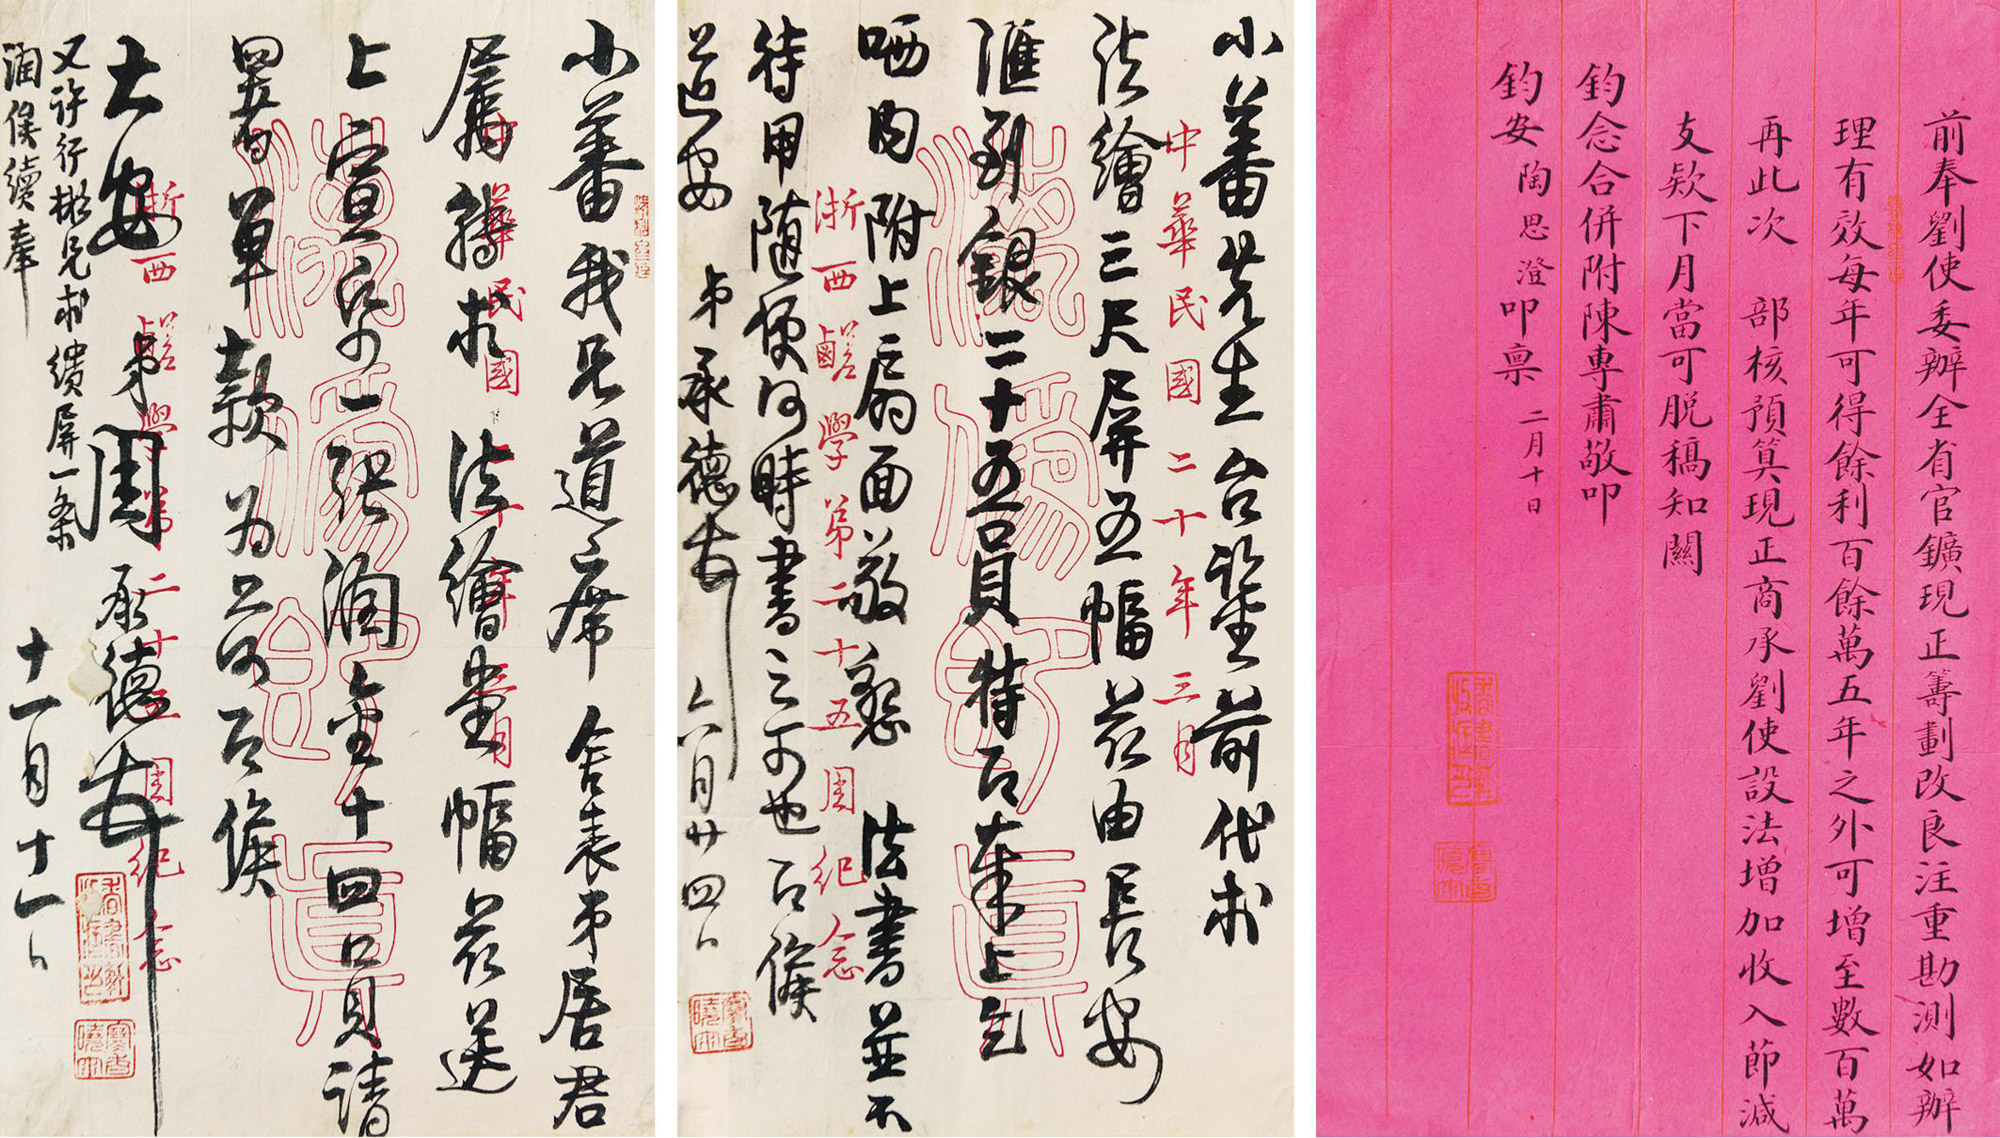 前奉劉使委辦全省官鑛現正籌劃改良注重勘測如辦
理有效每年可得餘利百餘萬五年之外可增至數百萬
再此次　部核預算現正商承劉使設法增加收入節減
支欵下月當可脱稿知關
鈞念合併附陳專肅敬叩
鈞安 陶思澄叩禀 二月十日
小蕃先生台鑒前代求
中華民國二十年三月
法繪三尺屏五幅茲由長安
滙到銀二十五員特以奉上乞
哂內附上扇面敬懇　法書並不
浙西鹺學第二十五周紀念
待用隨便何時書之可也此候
道安　弟承德　六月廿四日
小蕃我兄道席　舍表弟居君
屬轉求　法繪堂幅茲送
中華民國二十年三月
上宣紙一張潤金十四員請
署單款為荷此候
大安　弟周承德　十一月十一日
浙西鹺學第二十五周紀念
又許行彬兄求繢屏一条
潤俟續奉